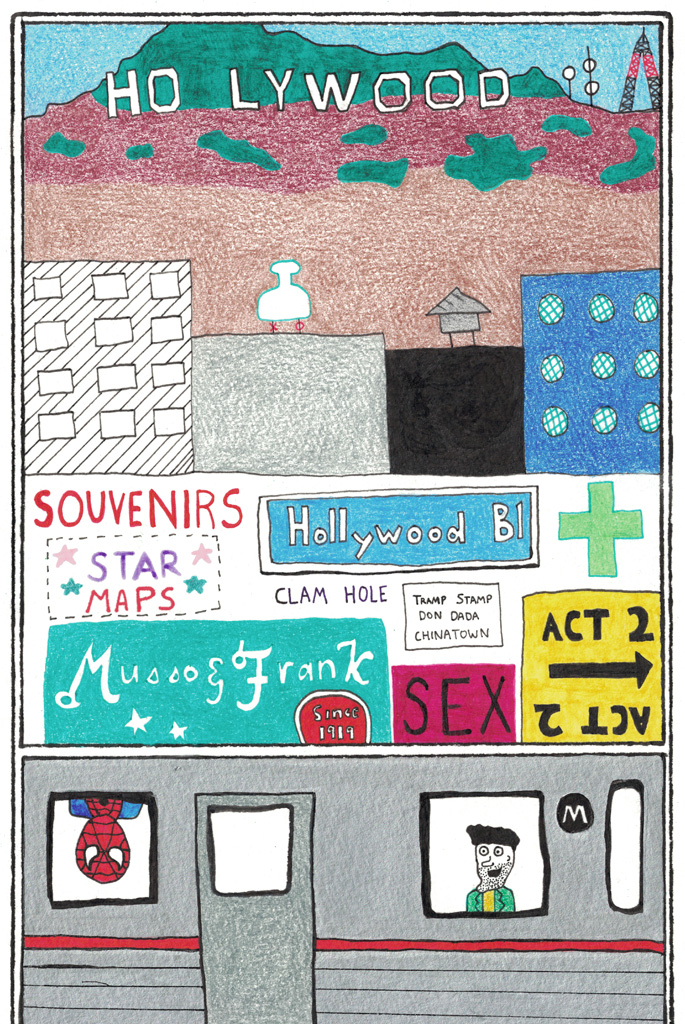 HO LYWOOD
SOUVENIRS
Hollywood Bl
STAR
MAPS
CLAM HOLE
TRAMP STAMP
DON DADA
CHINATOWN
ACT 2
ACT 2
Musso & Frank
Since
1919
SEX
M